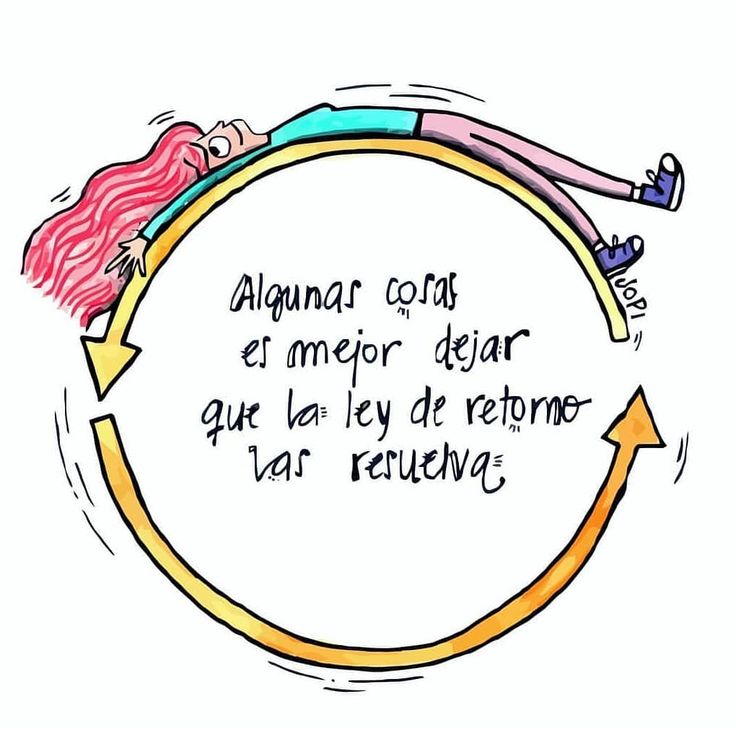 JOPI
Algunas cosas
es mejor dejar
que la ley de retorno
las resuelva